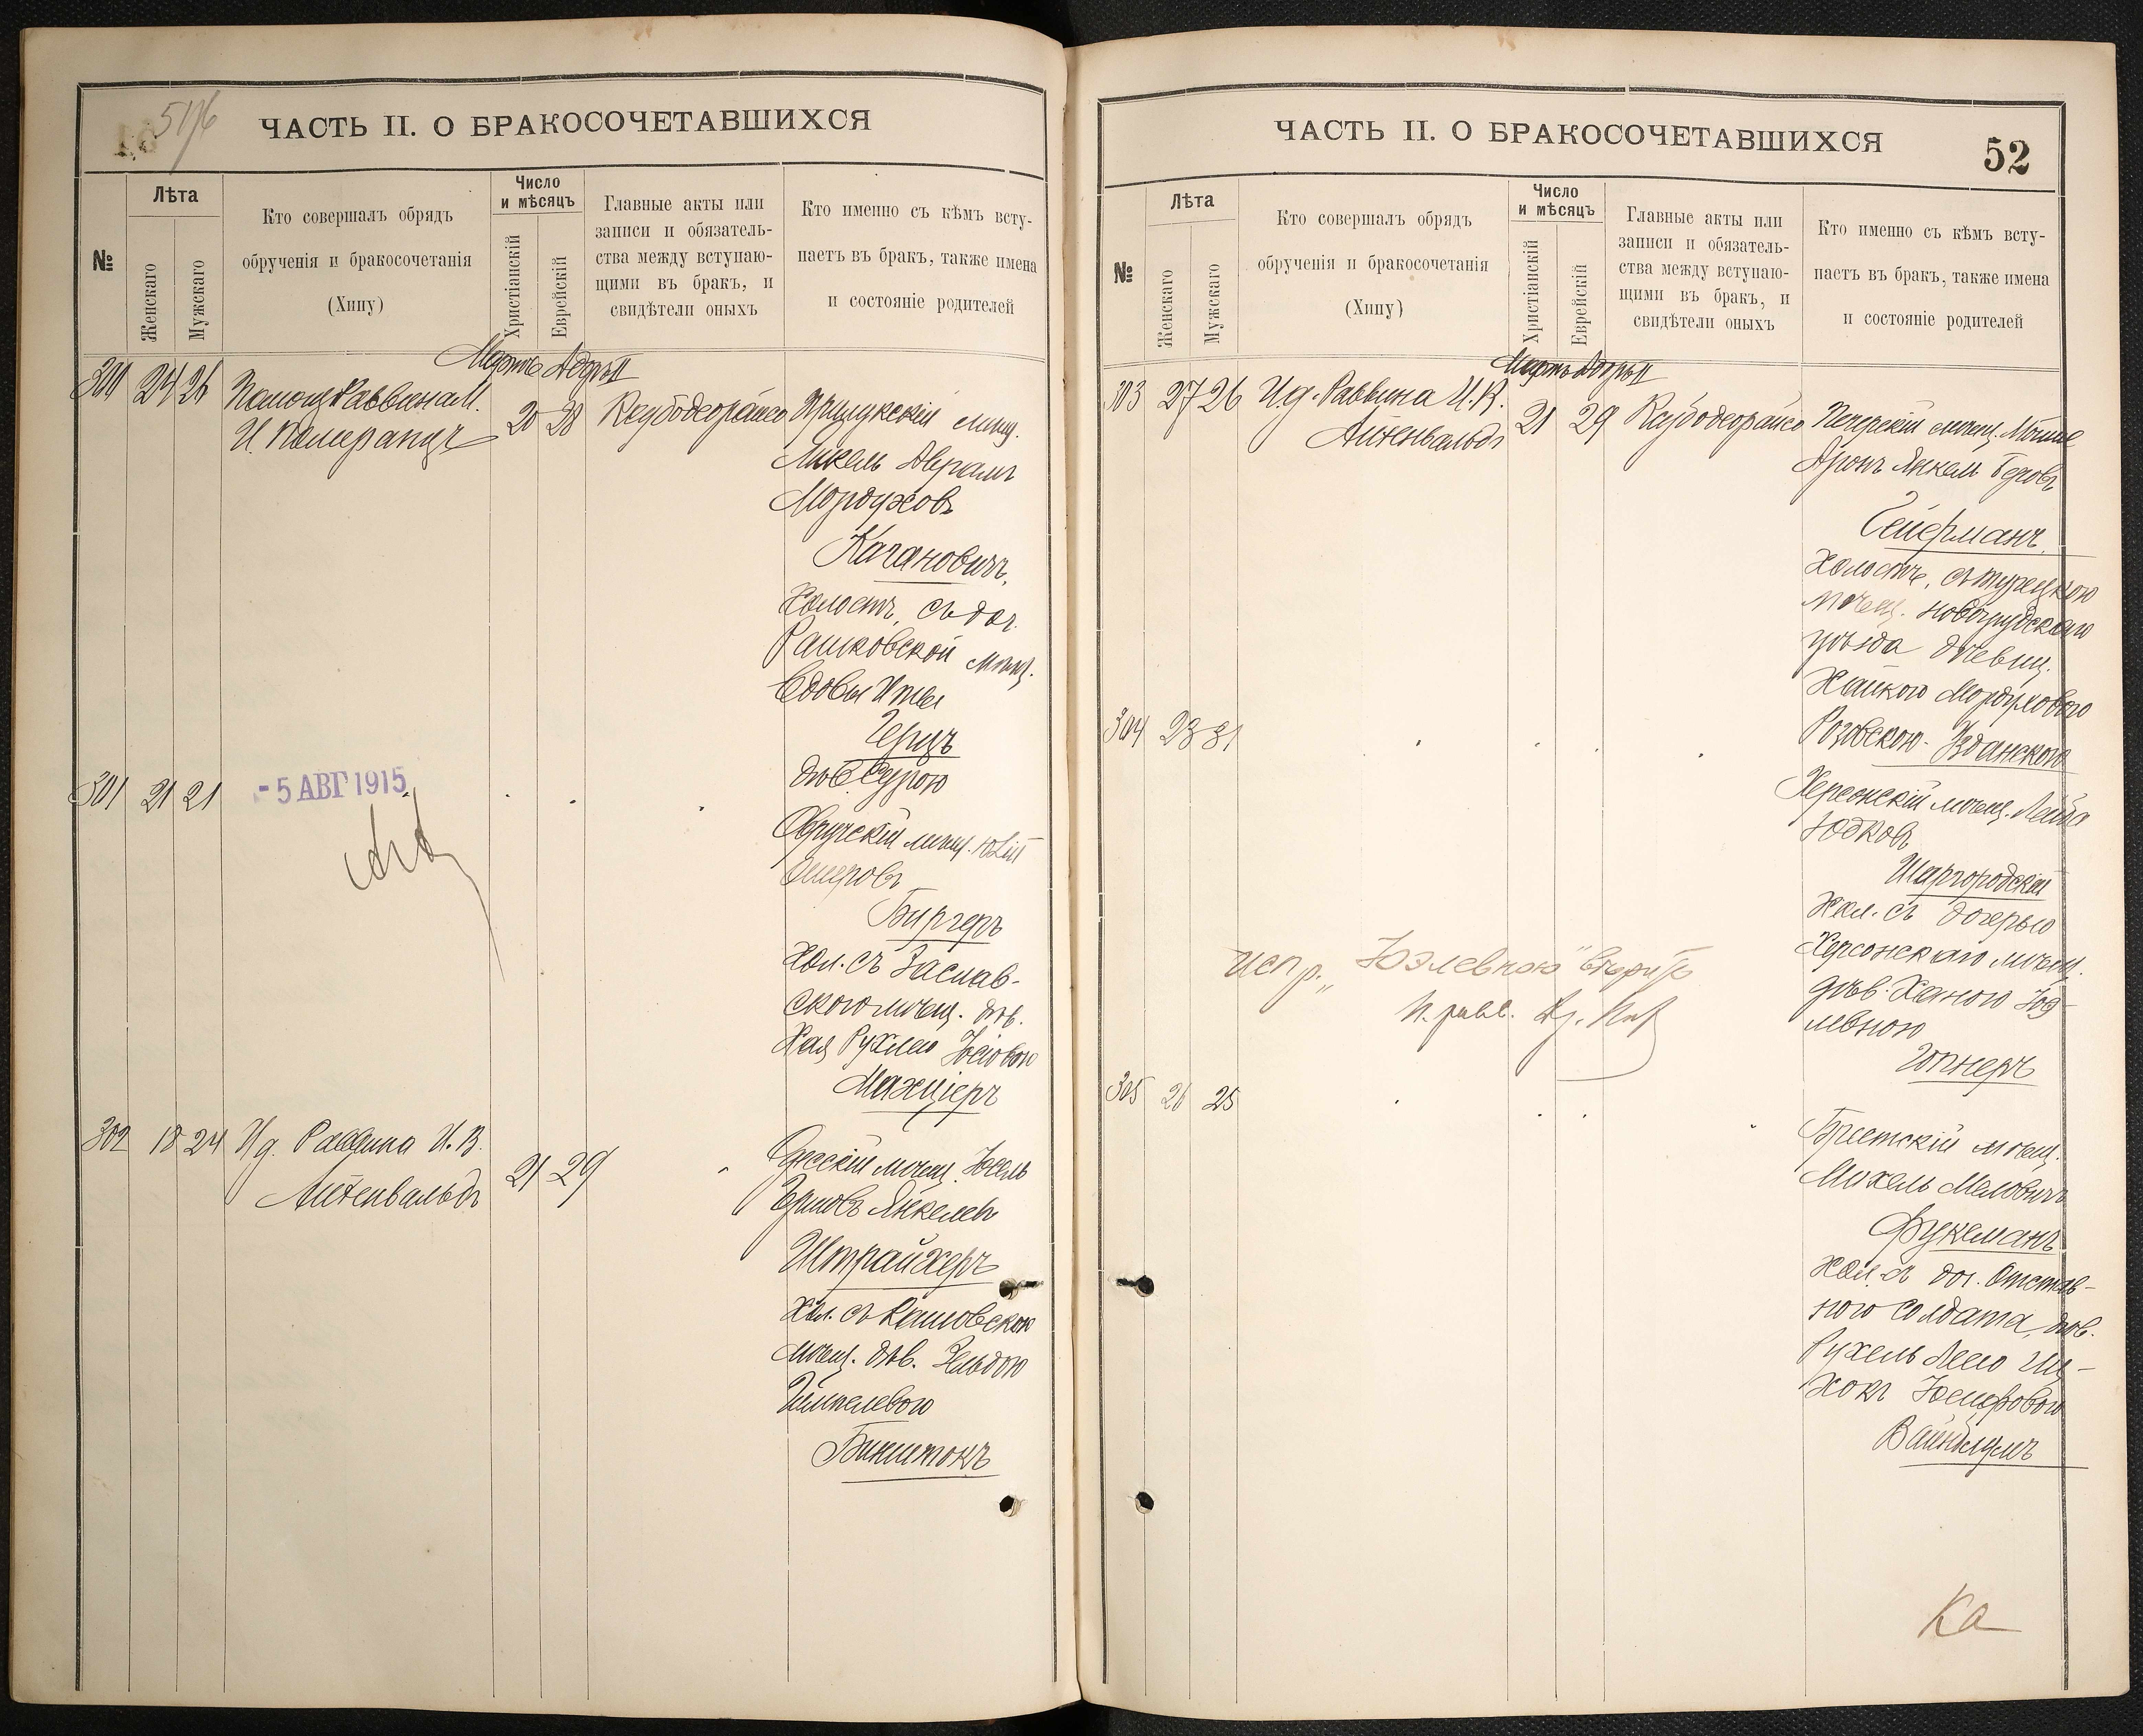 51/6
ЧАСТЬ II. О БРАКОСОЧЕТАВШИХСЯ
№
Лѣта
Женскаго
Мужскаго
Кто совершалъ обрядъ
обрученія и бракосочетанія
(Хипу)
Число
и мѣсяцъ
Христіанскій
Еврейскій
Главные акты или
записи и обязатель-
ства между вступаю-
щими въ бракъ, и
свидѣтели оныхъ
Кто именно съ кѣмъ всту-
паетъ въ бракъ, также имена
и состояніе родителей
Мартъ Адаръ II
300 24 26
Помощ Раввина М.
И. Померанцъ
20 28
Каубодеорайсо
Прилукскій мѣщ.
Микель Аврамъ
Мордуховъ
Кагановичъ,
Холостъ, съ доч.
Рашковской мѣщ.
Вдовы Итты
Герцъ
дѣв. Сурою
301 21 21
-5 АВГ 1915
Овручскій мѣщ.
Ошеровъ
Бургеръ
Хол. съ Заслав-
скою мѣщ. дѣв.
Хая Рухлею Іосіовою
Махціеръ
302 18 24
И. д. Раввина И. В.
Айтенвальдъ
21 29
Одесскій мѣщ. Іосель
Гершовъ Янкелевъ
Штрайхеръ
Хол. съ Рашковскою
мѣщ. дѣв. Зельдою
Гимпелевою
Бинштокъ
ЧАСТЬ II. О БРАКОСОЧЕТАВШИХСЯ
52
№
Лѣта
Женскаго
Мужскаго
Кто совершалъ обрядъ
обрученія и бракосочетанія
(Хипу)
Число
и мѣсяцъ
Христіанскій
Еврейскій
Главные акты или
записи и обязатель-
ства между вступаю-
щими въ бракъ, и
свидѣтели оныхъ
Кто именно съ кѣмъ всту-
паетъ въ бракъ, также имена
и состояніе родителей
Мартъ Адаръ II
303 27 26
И. д. Раввина И. В.
Айтенвальдъ
21 29
Каубодеорайсо
Печерскій мѣщ. Мошко
Аронъ Янкель Беровъ
Сейерманъ
Холостъ, съ турецкою
мѣщ. новогрудскаго
уѣзда дѣвиц.
Хайкою Мордуховою
Розовскою-Узданскою
304 23 31
Херсонскій мѣщ. Лейба
Юдковъ
Шаргородскій
Хол. съ дочерью
Херсонскаго мѣщ.
дѣв. Ханою Юэ-
левною
Гопнеръ
испр. „Юэлевною" вѣрить
305 26 25
Брестскій мѣщ.
Михель Меловичъ
Фуксманъ
Хол. съ доч. Отстав-
ного солдата, дѣв.
Рухель Леею Ци-
Вайнблумъ
Ка